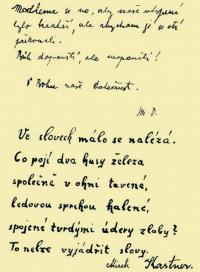 Modleme se za, aby naše utrpení
bylo kratší, ale abychom je v síti
překonali.
Bůh dopouští, ale neopouští!
V Bohu naše
M. D.
Ve slovech málo se nalézá.
Co pojí dva kusy železa
společně v ohni tavené,
ledovou sprchou kalené,
spojené tvrdými údery zloby?
To nelze vyjádřit slovy.
Mirek Kastner.